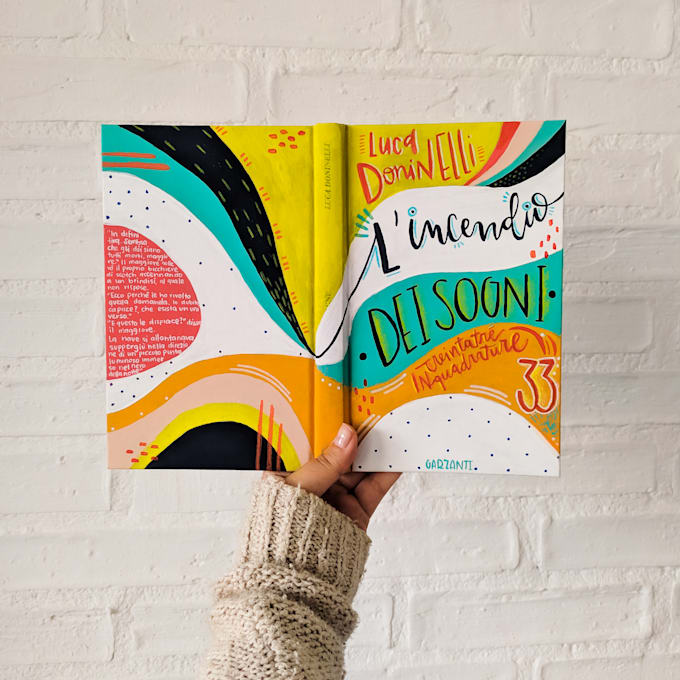 "In defini
tiva sembra
che gli dei siano
tutti morti, maggio
re." Il maggiore solle
vò il proprio bicchiere
di scotch accennando
a un brindisi, al quale
non rispose.
"Ecco perché le ho rivolto
questa domanda. Io dubito
capisce?, che esista un uni
verso."
"E questo le dispiace?" disse
il maggiore.
La nave si allontanava
suppergiù nella direzio
ne di un piccolo punto
luminoso immer
so nel nero
della notte.
LUCA DONINELLI
Luca
DoniNELLi
L'incendio
DEI SOGNI
trentatré
INquadrature
33
GARZANTI